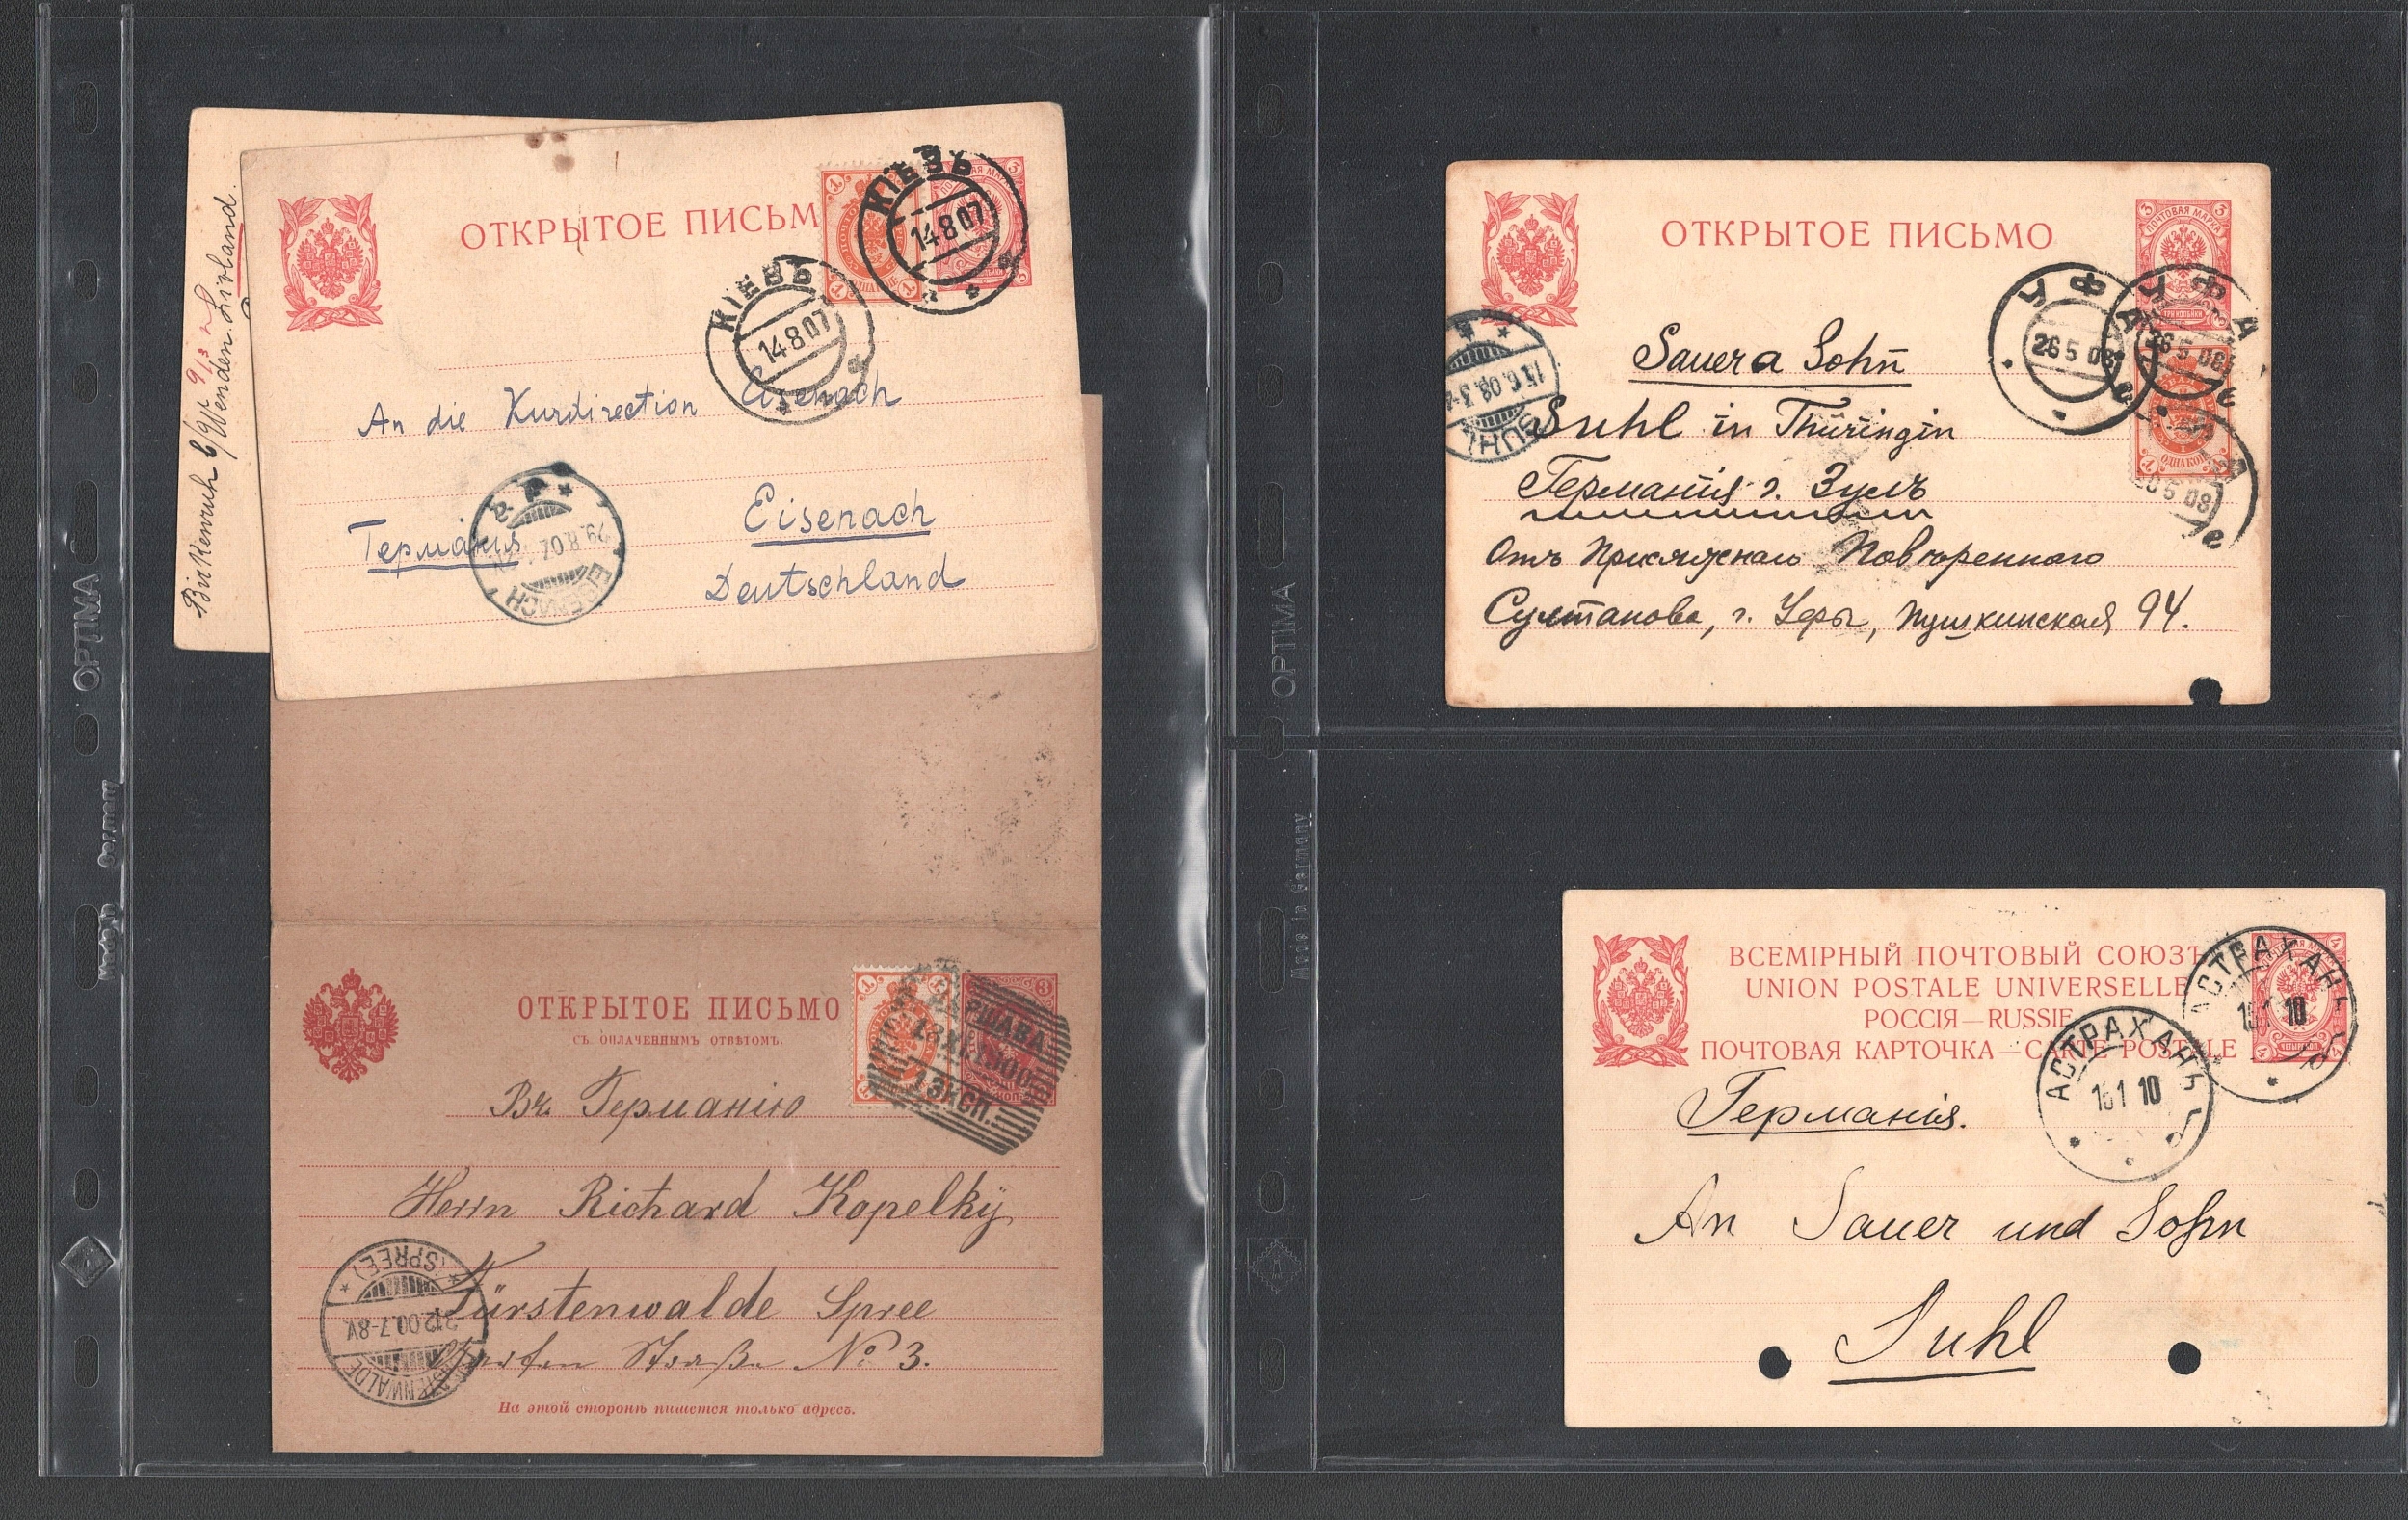 Birkenruh b/Wenden. Livland.
ОТКРЫТОЕ ПИСЬМ
КІЕВЪ
14 8 07
КІЕВЪ
14 8 07
An die Kurdirection Eisenach
Германія
Eisenach
Deutschland
EISENACH
29.8.07
ОТКРЫТОЕ ПИСЬМО
СЪ ОПЛАЧЕННЫМЪ ОТВѢТОМЪ.
ВАРШАВА
Въ Германію
Herrn Richard Kopelky
Fürstenwalde Spree
Straße No 3.
(SPREE)
7-8V.
FÜRSTENWALDE
На этой сторонѣ пишется только адресъ.
OPTIMA
Made in Germany
ОТКРЫТОЕ ПИСЬМО
ПОЧТОВАЯ МАРКА
УФА
26 5 08
УФА
26 5 08
Sauer a Sohn
Suhl in Thüringin
Германія г. Зулъ
Отъ Присяжнаго Повѣреннаго
Султанова, г. Уфы, Пушкинская 94.
SUHL
OPTIMA
Made in Germany
ВСЕМІРНЫЙ ПОЧТОВЫЙ СОЮЗЪ
UNION POSTALE UNIVERSELLE
РОССІЯ—RUSSIE
ПОЧТОВАЯ КАРТОЧКА—CARTE POSTALE
АСТРАХАНЬ
10
АСТРАХАНЬ
10
Германія.
An Sauer und Sohn
Suhl